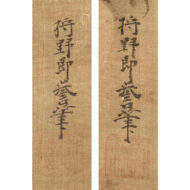 狩野即譽筆
狩野即譽筆